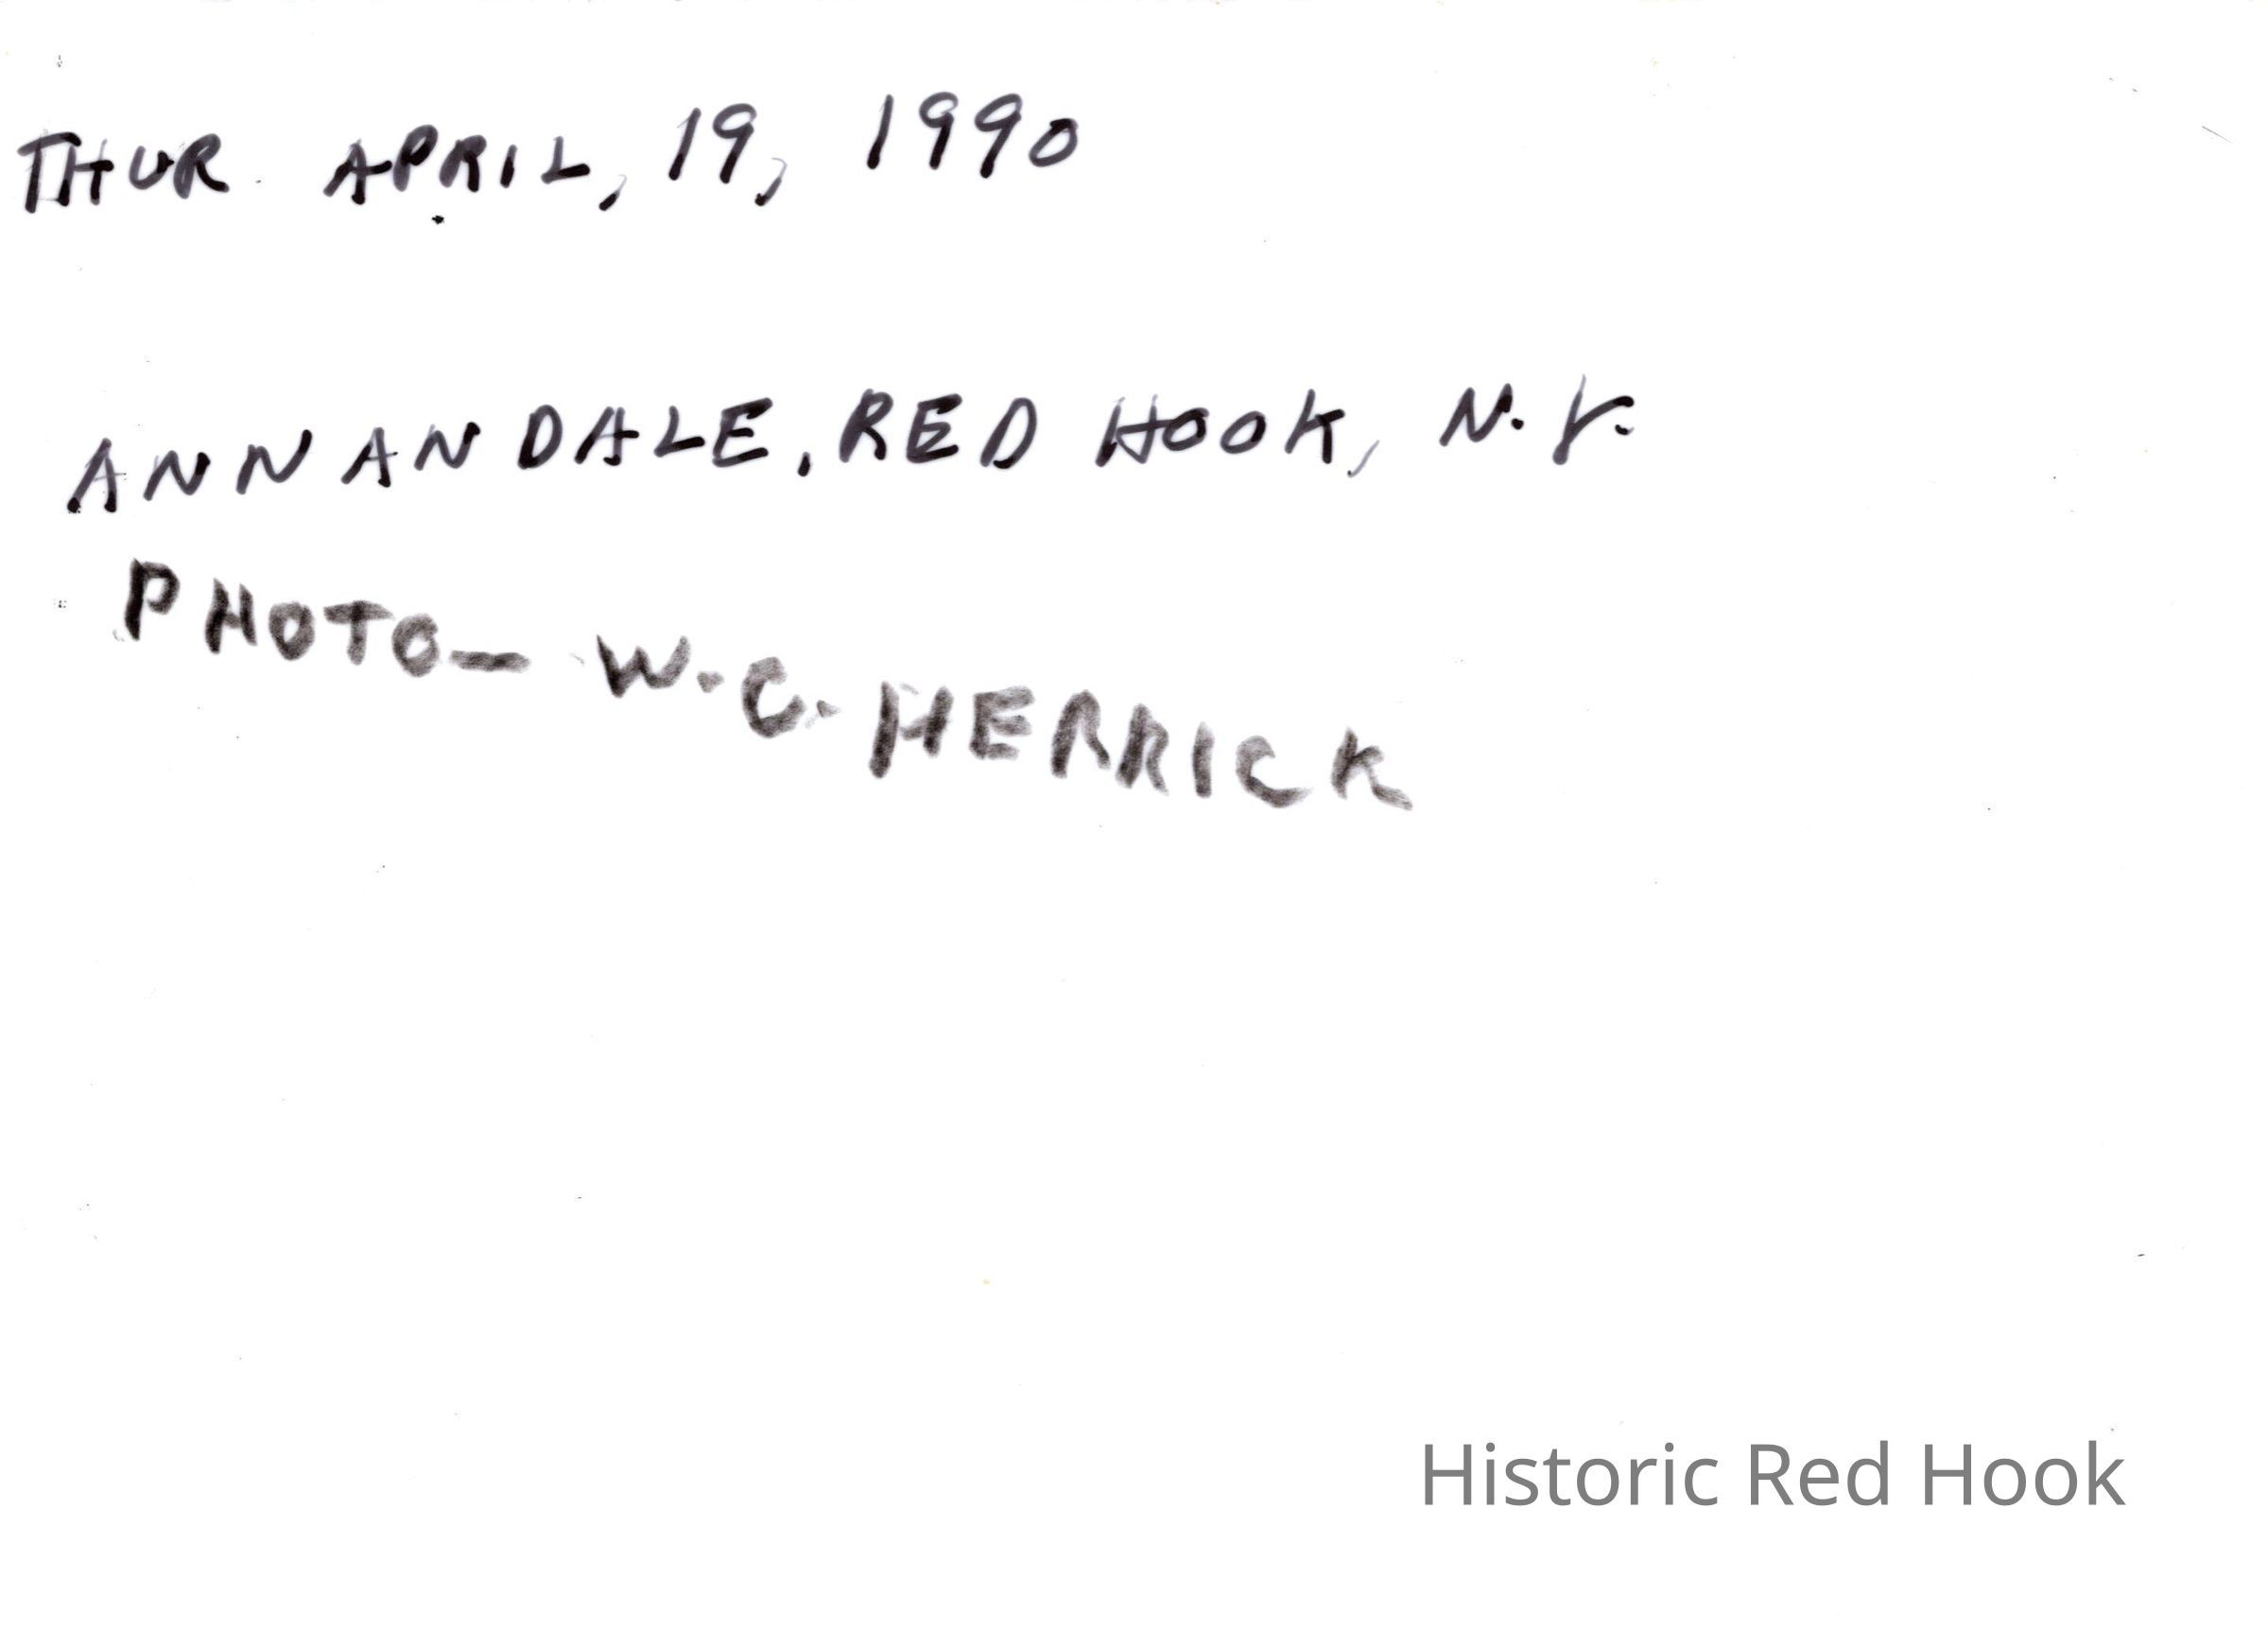 THUR APRIL, 19, 1990
ANNANDALE, RED HOOK, N.Y.
PHOTO— W.C. HERRICK
Historic Red Hook